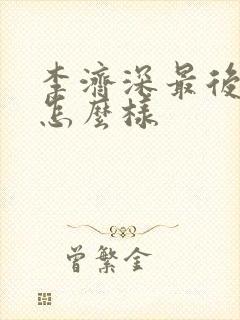 李濟深最後
怎麼樣
曾繁金